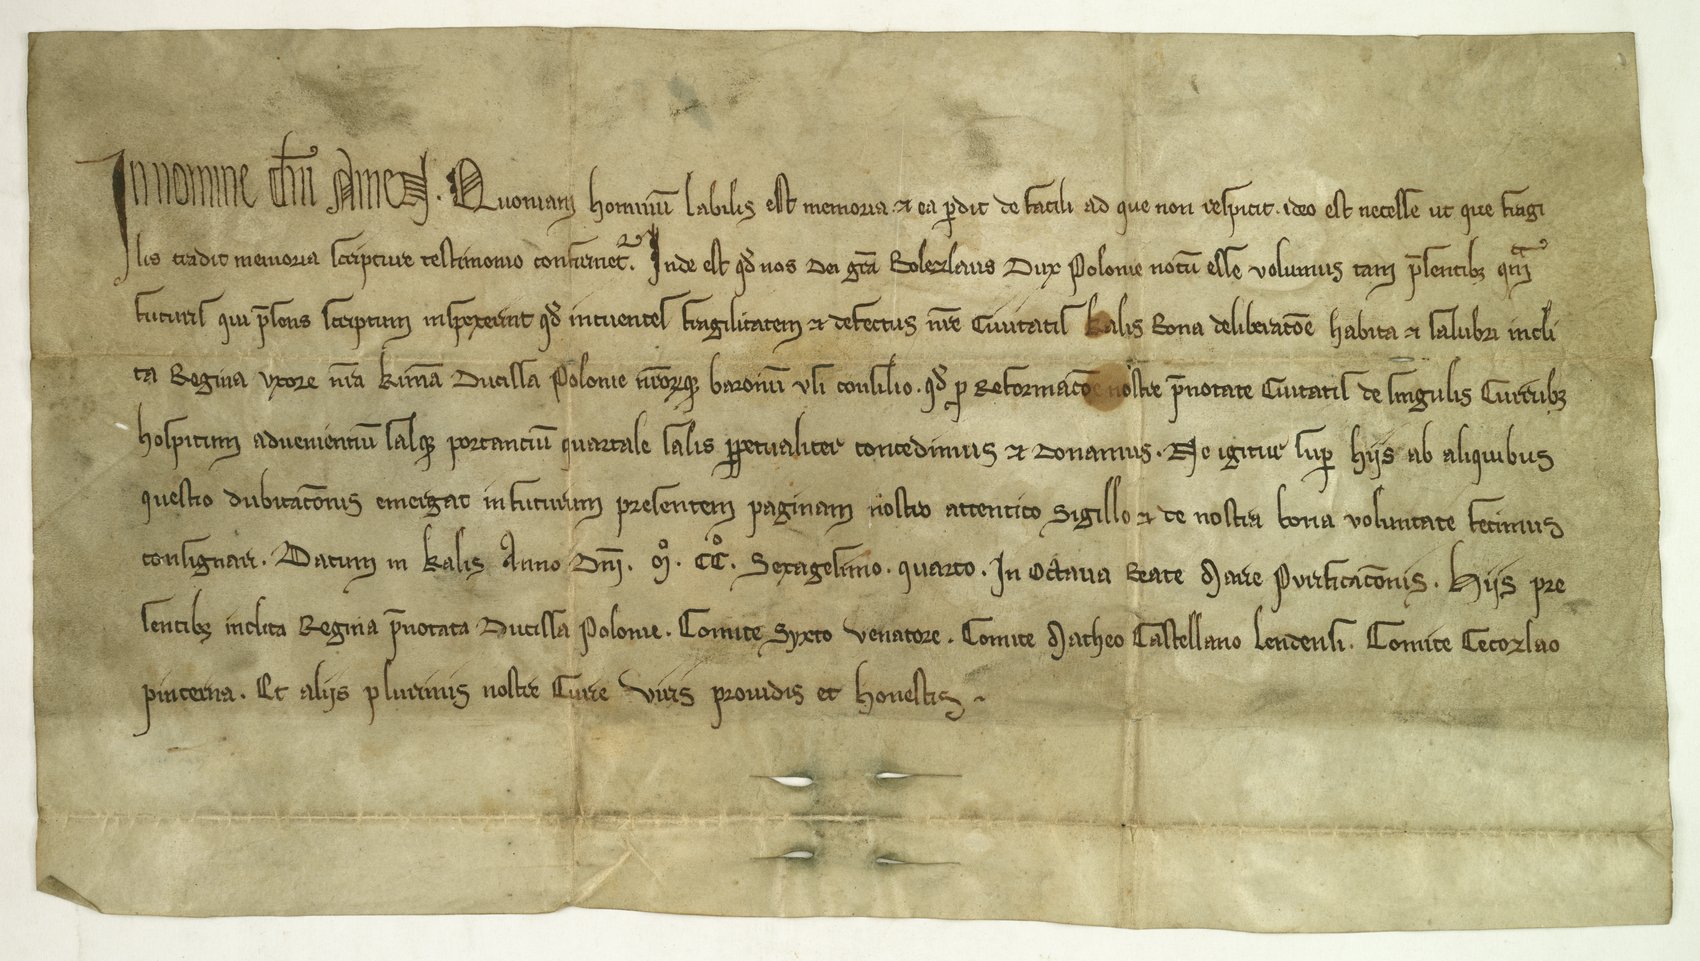 In nomine dñi Amen. Quoniam hominũ labilis est memoria ⁊ ea ꝑdit de facili ad que non respicit. ideo est necesse ut que fragi
lis tradit memoria scripture testimonio confirmet᷑. Inde est qd̃ nos dei grã Bolezlaus Dux Polonie notũ esse volumus tam p̃sentibꝫ qm̃
futuris qui p̃sens scriptum inspexerint qd̃ intuentes fragilitatem ⁊ defectus nr̃e Ciuitatis Kalis Bona deliberatõe habita ⁊ salubri incli
ta Regina vxore nr̃a Kin̄a Ducissa Polonie nr̃orꝫqꝫ baronũ vsi consilio. qd̃ ꝑ Reformatõe nostre p̃notate Ciuitatis de singulis Curribꝫ
hospitum aduenientiũ salqꝫ portantiũ quartale salis ꝑpetualiter concedimus ⁊ donamus. Ne igitur suꝑ hijs ab aliquibus
questio dubitatõnis emergat in futurum presentem paginam nostro attentico Sigillo ⁊ de nostra bona voluntate fecimus
consignari. Datum in Kalis Anno Dnĩ. Mº. CCº. Sexagesimo. quarto. In Octaua Beate Marie Purificatõnis. Hijs pre
sentibꝫ inclita Regina p̃notata Ducissa Polonie. Comite Syxto Venatore. Comite Matheo Castellano Lendensi. Comite Cecozlao
pincerna. Et alijs plurimis nostre Curie Viris prouidis et honestis.